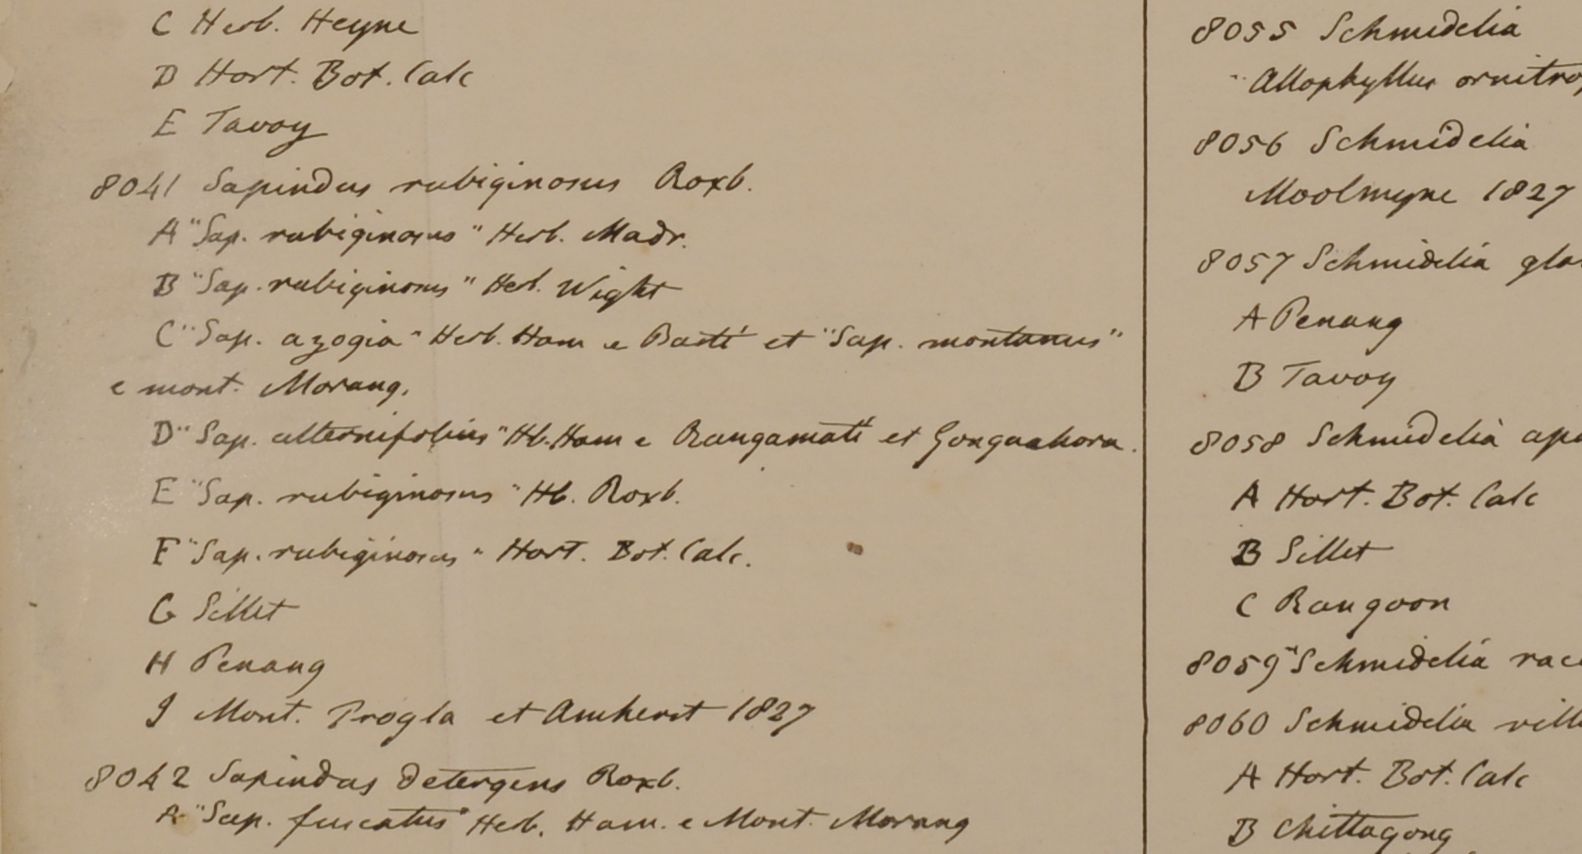 C Herb. Heyne
D Hort. Bot. Calc
E Tavoy
8041 Sapindus rubiginosus Roxb.
A "Sap. rubiginosus" Herb. Madr.
B "Sap. rubiginosus" Herb. Wight
C "Sap. azogia" Herb. Ham e et "Sap. montanus"
e mont. Morang.
D "Sap. alternifolius" Hb. Ham e Rangamati et
E "Sap. rubiginosus" Hb. Roxb.
F "Sap. rubiginosus" Hort. Bot. Calc.
G Sillet
H Penang
J Mont. Progla et Amherst 1827
8042 Sapindus detergens Roxb.
A "Sap. fuscatus" Herb. Ham. e Mont Morang
8055 Schmidelia
Allophyllus
8056 Schmidelia
Moolmyne 1827
8057 Schmidelia
A Penang
B Tavoy
8058 Schmidelia
A Hort. Bot. Calc
B Sillet
C Rangoon
8059 "Schmidelia
8060 Schmidelia
A Hort. Bot. Calc
B Chittagong